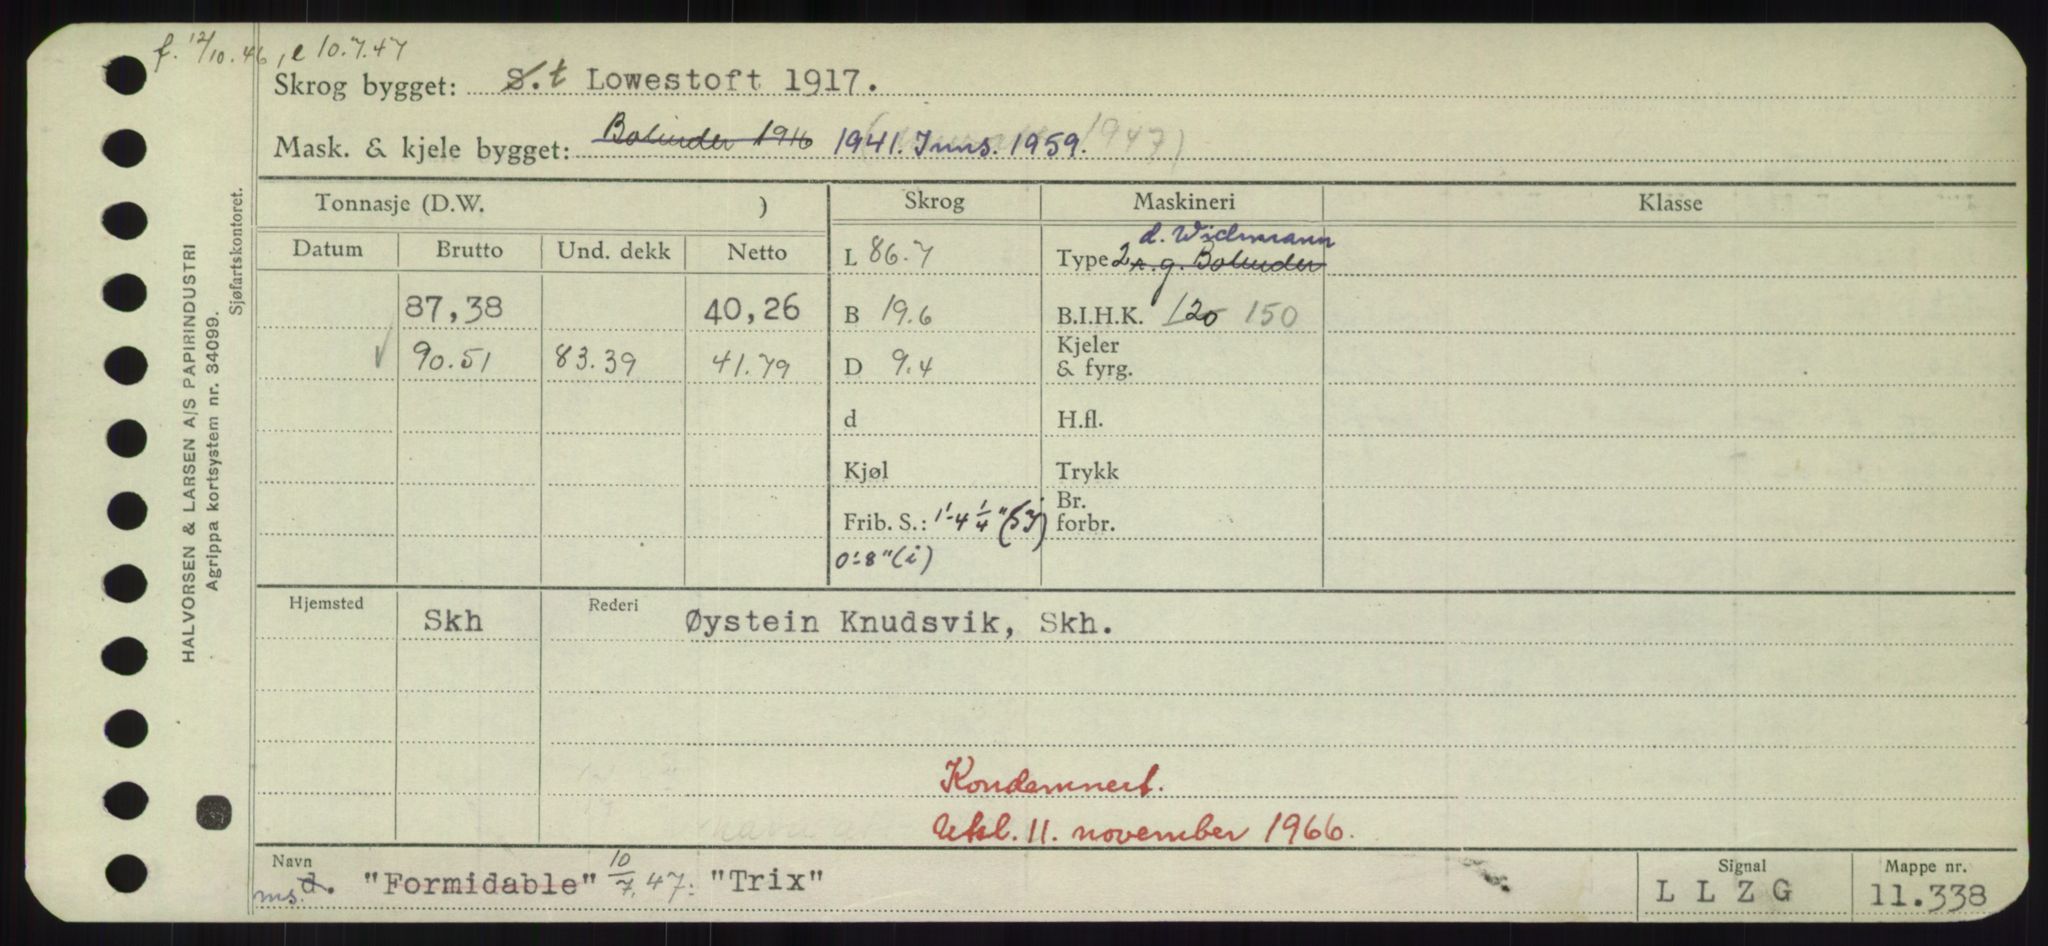 f. 12/10.46, e 10.7.47
Skrog bygget: S.t Lowestoft 1917.
Mask. & kjele bygget: Bolinder 1916 1941. Inns. 1959. 1947)
Tonnasje (D.W. ) Skrog Maskineri Klasse
Datum Brutto Und. dekk Netto
L 86.7 Type 2 r.g. Bolinder d. Wichmann
87,38 40,26 B 19.6 B.I.H.K. 120 150
✓ 90.51 83.39 41.79 D 9.4 Kjeler & fyrg.
d H.fl.
Kjøl Trykk
Frib. S.: 1'-4 1/4" (s) Br. forbr.
0'-8" (i)
Hjemsted Skh Rederi Øystein Knudsvik, Skh.
Kondemnert.
Utsl. 11. november 1966.
Navn ms. d. "Formidable" 10/7.47: "Trix"
Signal L L Z G
Mappe nr. 11.338
HALVORSEN & LARSEN A/S PAPIRINDUSTRI
Agrippa kortsystem nr. 34099.
Sjøfartskontoret.